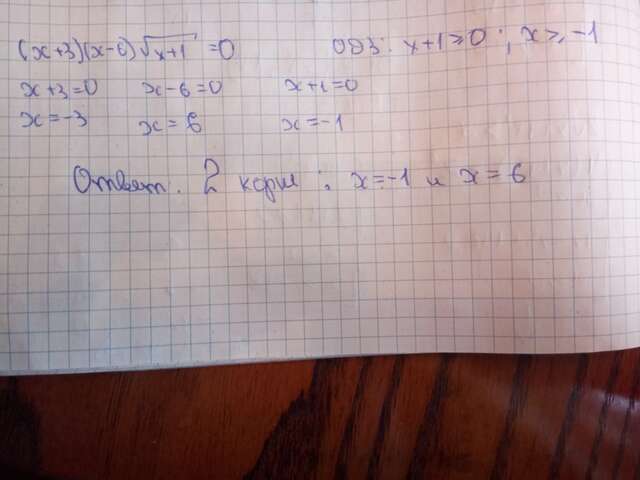 (x+3)(x-6)√x+1 = 0 ОДЗ: x+1≥0; x≥-1
x+3=0 x-6=0 x+1=0
x=-3 x=6 x=-1
Ответ: 2 корня: x=-1 и x=6